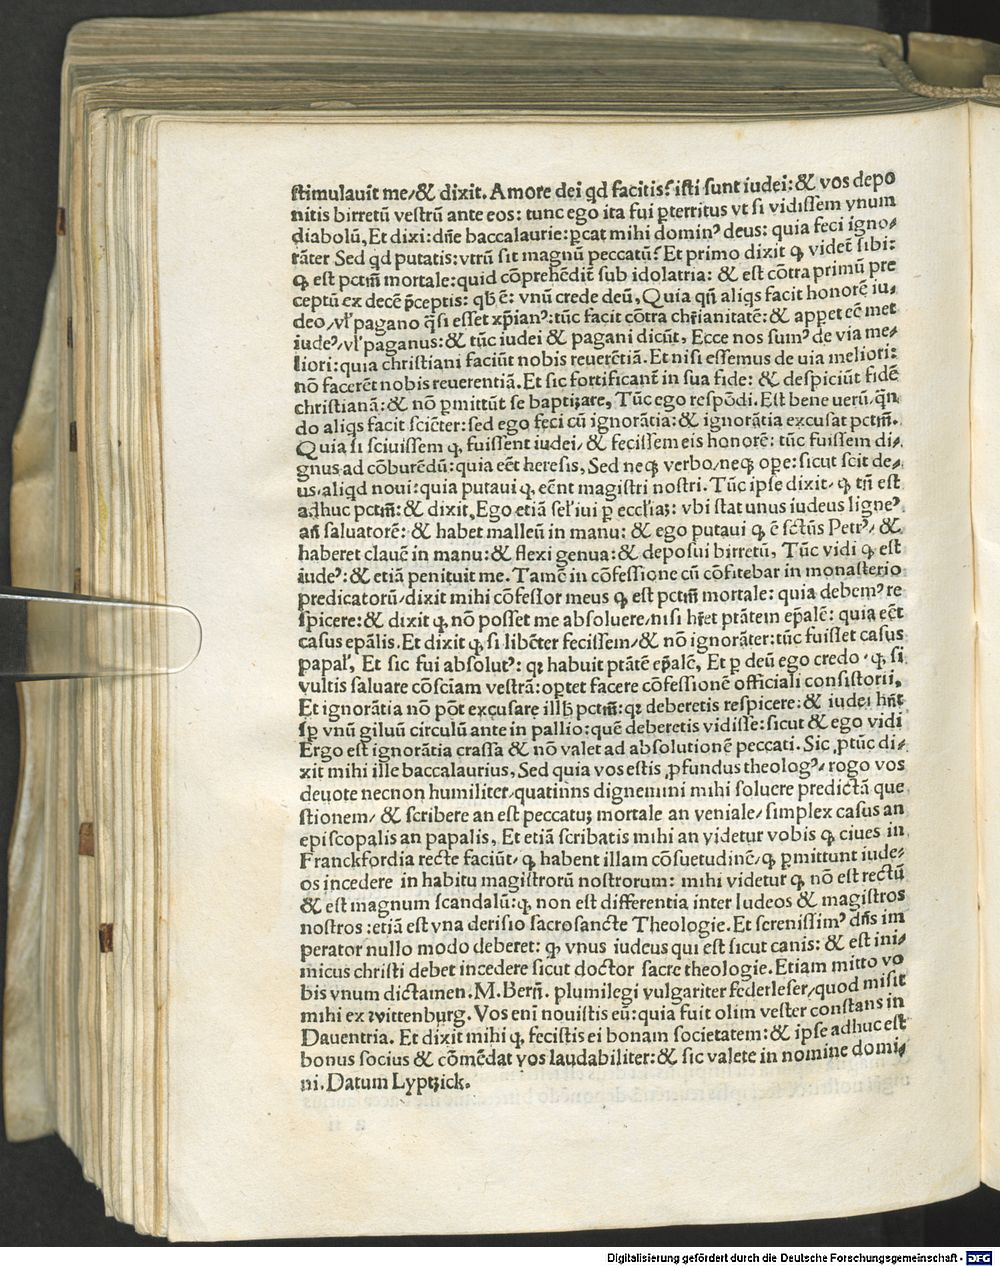 stimulavit me/& dixit. Amore dei qd facitis? isti sunt iudei: & vos depo
nitis birretũ vestrũ ante eos: tunc ego ita fui ꝑterritus vt si vidissem vnum
diabolũ, Et dixi: dñe baccalaurie: ꝑcat mihi dominꝰ deus: quia feci igno⸗
rãter Sed qd putatis: vtrũ sit magnũ peccatũ? Et primo dixit ꝙ videt̃ sibi:
ꝙ est pctm̃ mortale: quid cõprehẽdit̃ sub idolatria: & est cõtra primũ pre
ceptũ ex decẽ p̃ceptis: qđ ẽ: vnũ crede deũ, Quia qñ aliqs facit honorẽ iu⸗
deo/vl' pagano q̃si esset xp̃ianꝰ: tũc facit cõtra chr̃ianitatẽ: & appet eẽ met
iudeꝰ/vl' paganus: & tũc iudei & pagani dicũt, Ecce nos sumꝰ de via me⸗
liori: quia christiani faciũt nobis reuerẽtiã. Et nisi essemus de uia meliori:
nõ facerẽt nobis reuerentiã. Et sic fortificant̃ in sua fide: & despiciũt fidẽ
christianã: & nõ ꝑmittũt se baptiȝare, Tũc ego respõdi. Est bene uerũ/qñ
do aliqs facit sciẽter: sed ego feci cũ ignorãtia: & ignorãtia excusat pctm̃.
Quia si sciuissem ꝙ fuissent iudei/ & fecissem eis honorẽ: tũc fuissem di⸗
gnus ad cõburẽdũ: quia eẽt heresis, Sed neqꝫ verbo/neqꝫ oꝑe: sicut scit de⸗
us/aliqd noui: quia putaui ꝙ eẽnt magistri nostri. Tũc ipse dixit/ ꝙ tñ est
adhuc pctm̃: & dixit, Ego etiã sel' iui ꝑ ecclias: vbi stat unus iudeus ligneꝰ
añ saluatorẽ: & habet malleũ in manu: & ego putaui ꝙ ẽ sctũs Petrꝰ/ &
haberet clauẽ in manu: & flexi genua: & deposui birretũ, Tũc vidi ꝙ est
iudeꝰ: & etiã penituit me. Tamẽ in cõfessione cũ cõfitebar in monasterio
predicatorũ/dixit mihi cõfessor meus ꝙ est pctm̃ mortale: quia debemꝰ re
spicere: & dixit ꝙ nõ posset me absoluere/nisi hr̃et ptãtem ep̃alẽ: quia eẽt
casus epãlis. Et dixit ꝙ si libẽter fecissem/& nõ ignorãter: tũc fuisset casus
papal', Et sic fui absolutꝰ: qꝛ habuit ptãtẽ ep̃alẽ, Et ꝑ deũ ego credo/ ꝙ si
vultis saluare cõsciam vestrã: oꝑtet facere cõfessionẽ officiali consistorii,
Et ignorãtia nõ põt excusare illđ pctm̃: qꝛ deberetis respicere: & iudei hñt
sꝑ vnũ giluũ circulũ ante in pallio: quẽ deberetis vidisse: sicut & ego vidi
Ergo est ignorãtia crassa & nõ valet ad absolutionẽ peccati. Sic ꝓtũc di⸗
xit mihi ille baccalaurius, Sed quia vos estis ꝓfundus theologꝰ/ rogo vos
deuote necnon humiliter/quatinns dignemini mihi soluere predictã que
stionem/ & scribere an est peccatuȝ mortale an veniale/ simplex casus an
episcopalis an papalis, Et etiã scribatis mihi an videtur vobis ꝙ ciues in
Franckfordia recte faciũt/ ꝙ habent illam cõsuetudinẽ/ꝙ ꝑmittunt iude⸗
os incedere in habitu magistrorũ nostrorum: mihi videtur ꝙ nõ est rectũ
& est magnum scandalũ: ꝙ non est differentia inter Iudeos & magistros
nostros: etiã est vna derisio sacrosancte Theologie. Et serenissimꝰ dñs im
perator nullo modo deberet: ꝙ vnus iudeus qui est sicut canis: & est ini⸗
micus christi debet incedere sicut doctor sacre theologie. Etiam mitto vo
bis vnum dictamen. M. Berñ. plumilegi vulgariter federleser/quod misit
mihi ex wittenburg. Vos enĩ nouistis eũ: quia fuit olim vester constans in
Dauentria. Et dixit mihi ꝙ fecistis ei bonam societatem: & ipse adhuc est
bonus socius & cõmẽdat vos laudabiliter: & sic valete in nomine domi⸗
ni. Datum Lyptȝick.
Digitalisierung gefördert durch die Deutsche Forschungsgemeinschaft - DFG